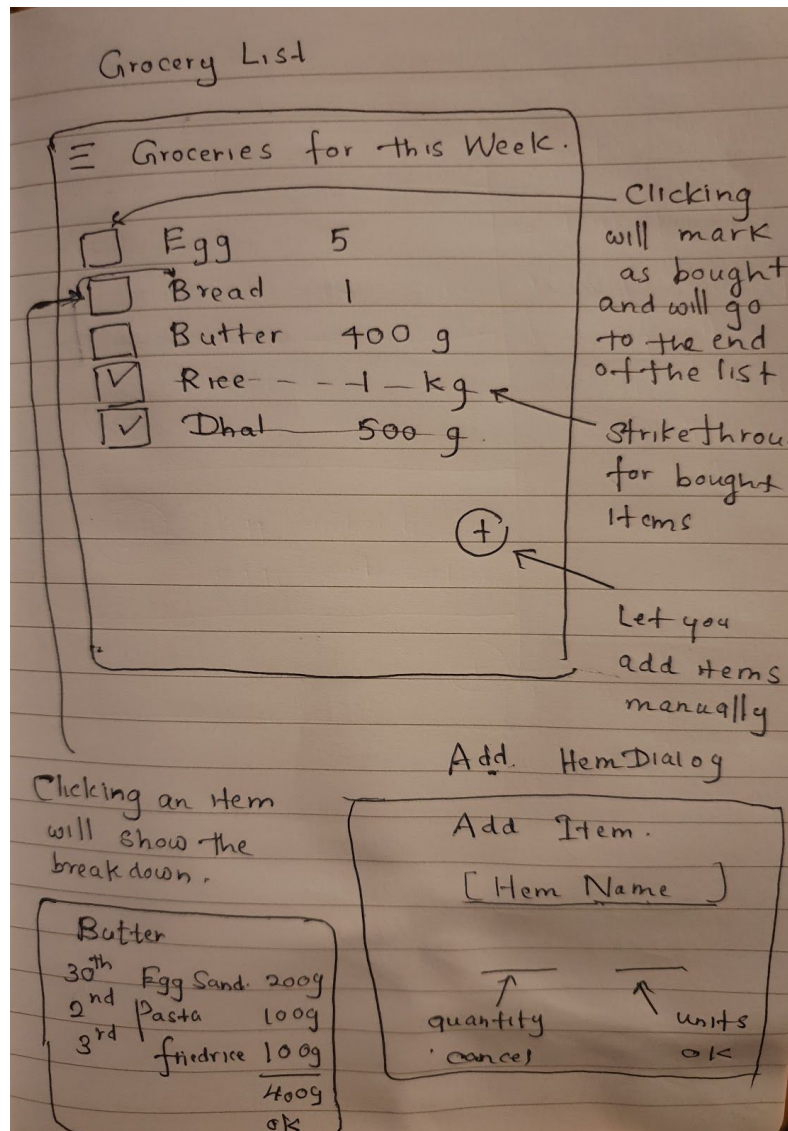 Grocery List
Groceries for this Week.
Egg 5
Bread 1
Butter 400 g
Rice 1 kg
Dhal 500 g
+
Clicking
will mark
as bought
and will go
to the end
of the list
strikethrou
for bought
Items
Let you
add items
manually
Clicking an item
will show the
breakdown.
Butter
30th Egg Sand. 200g
2nd Pasta 100g
3rd friedrice 100g
400g
ok
Add Item Dialog
Add Item.
[Item Name]
quantity units
cancel ok